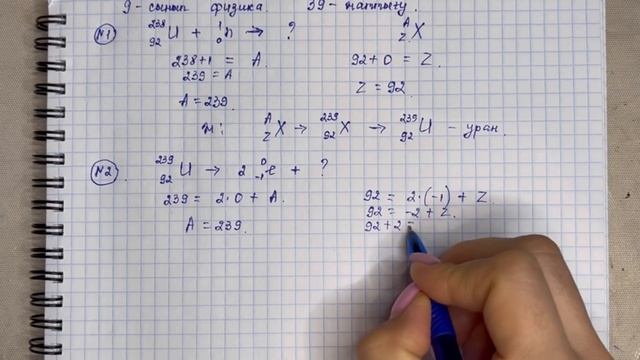 9 - сынып физика. 39 - жаттығу.
№1 ²³⁸₉₂U + ¹₀n → ? ᴬ_Z X
238+1 = A. 92+0 = Z.
239 = A Z = 92.
A = 239.
ж: ᴬ_Z X → ²³⁹₉₂X → ²³⁹₉₂U - уран.
№2. ²³⁹₉₂U → 2 ⁰₋₁e + ?
239 = 2·0 + A. 92 = 2·(-1) + Z.
A = 239. 92 = -2 + Z.
92+2 =